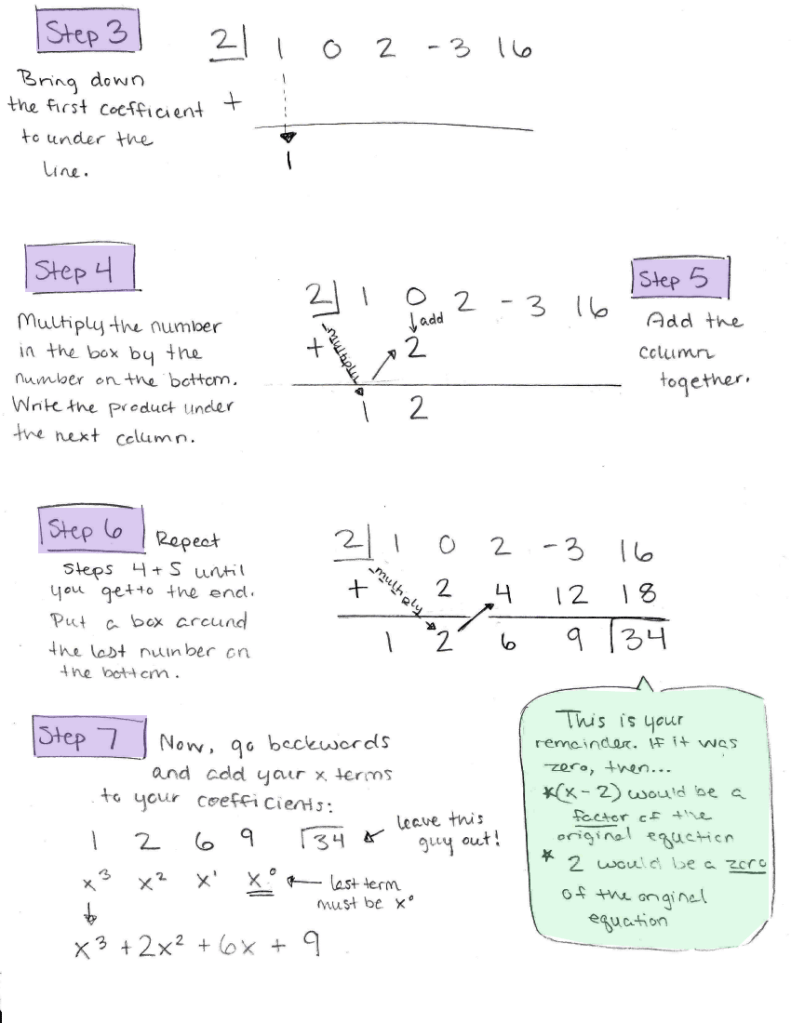 Step 3
2| 1 0 2 -3 16
Bring down
the first coefficient +
to under the
line.
1
Step 4
Step 5
2| 1 0 2 -3 16
↓add
Multiply the number
in the box by the
number on the bottom.
Write the product under
the next column.
+ multiply 2
1 2
Add the
column
together.
Step 6 Repeat
steps 4+5 until
you get to the end.
Put a box around
the last number on
the bottom.
2| 1 0 2 -3 16
+ multiply 2 4 12 18
1 2 6 9 34
Step 7 Now, go backwards
and add your x terms
to your coefficients:
1 2 6 9 34 ← leave this
guy out!
x³ x² x¹ x⁰ ← last term
must be x⁰
↓
x³ + 2x² + 6x + 9
This is your
remainder. If it was
zero, then...
*(x-2) would be a
factor of the
original equation
* 2 would be a zero
of the original
equation